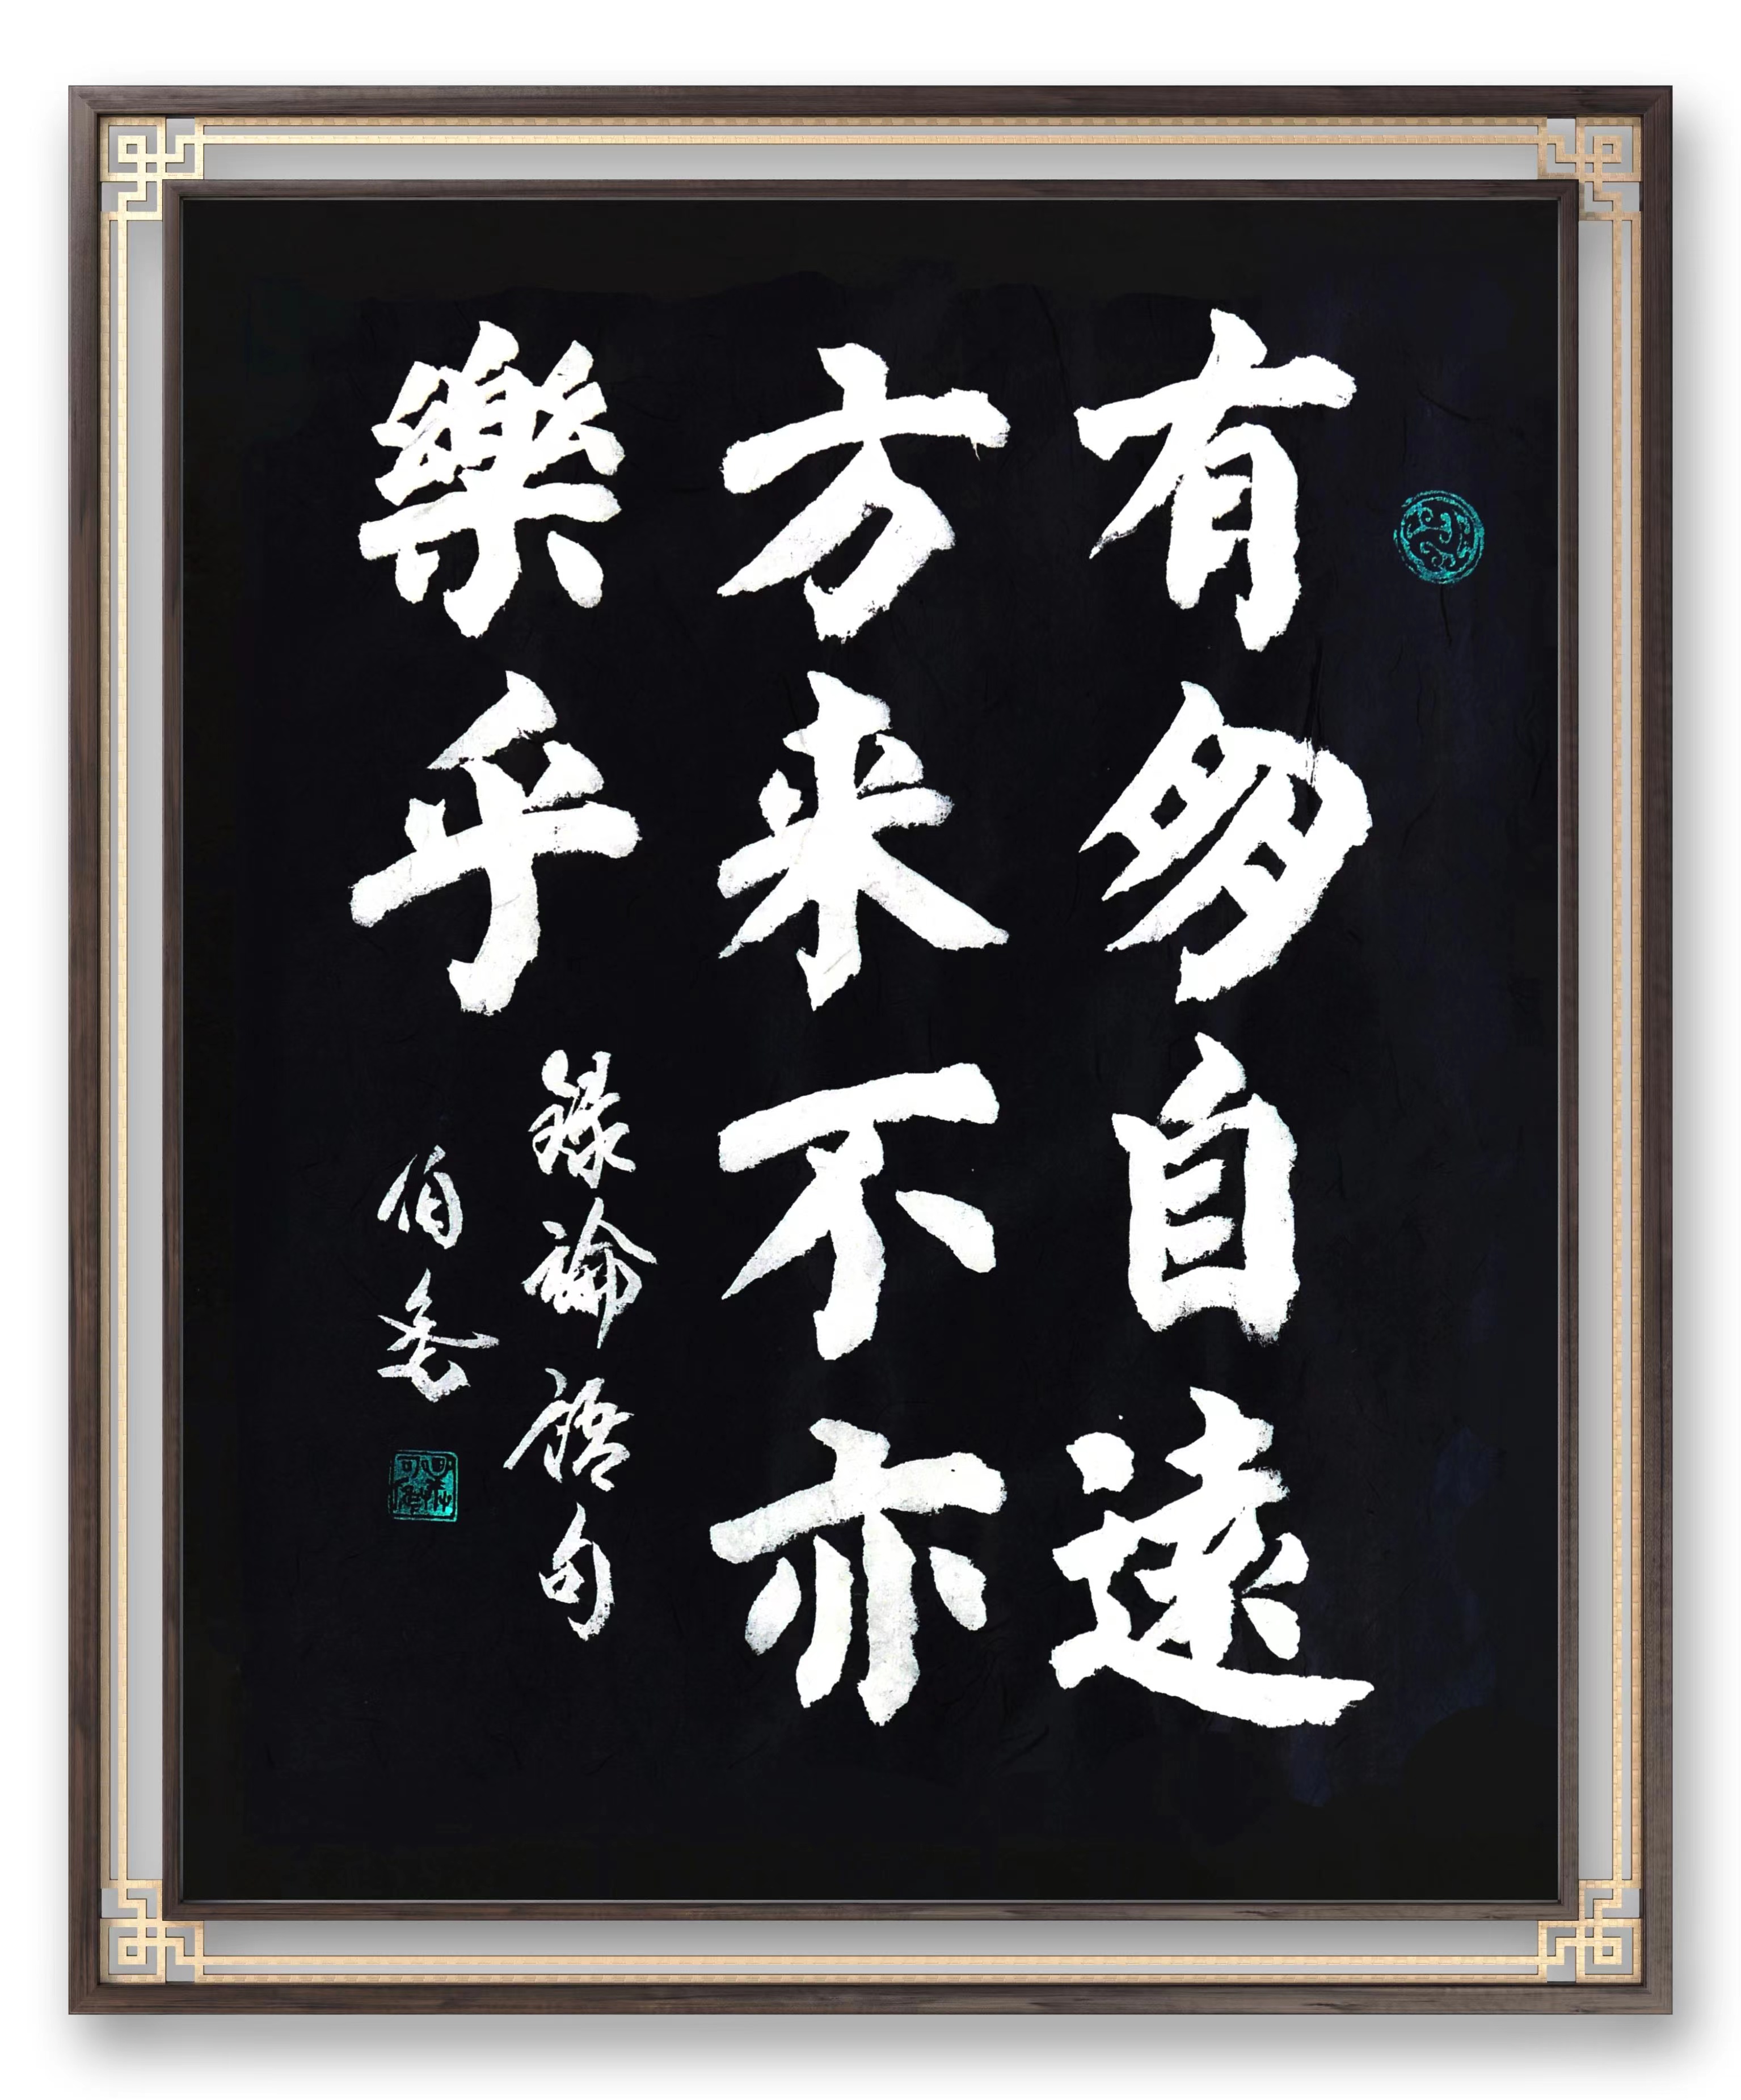 有朋自遠
方来不亦
樂乎
録論語句
伯